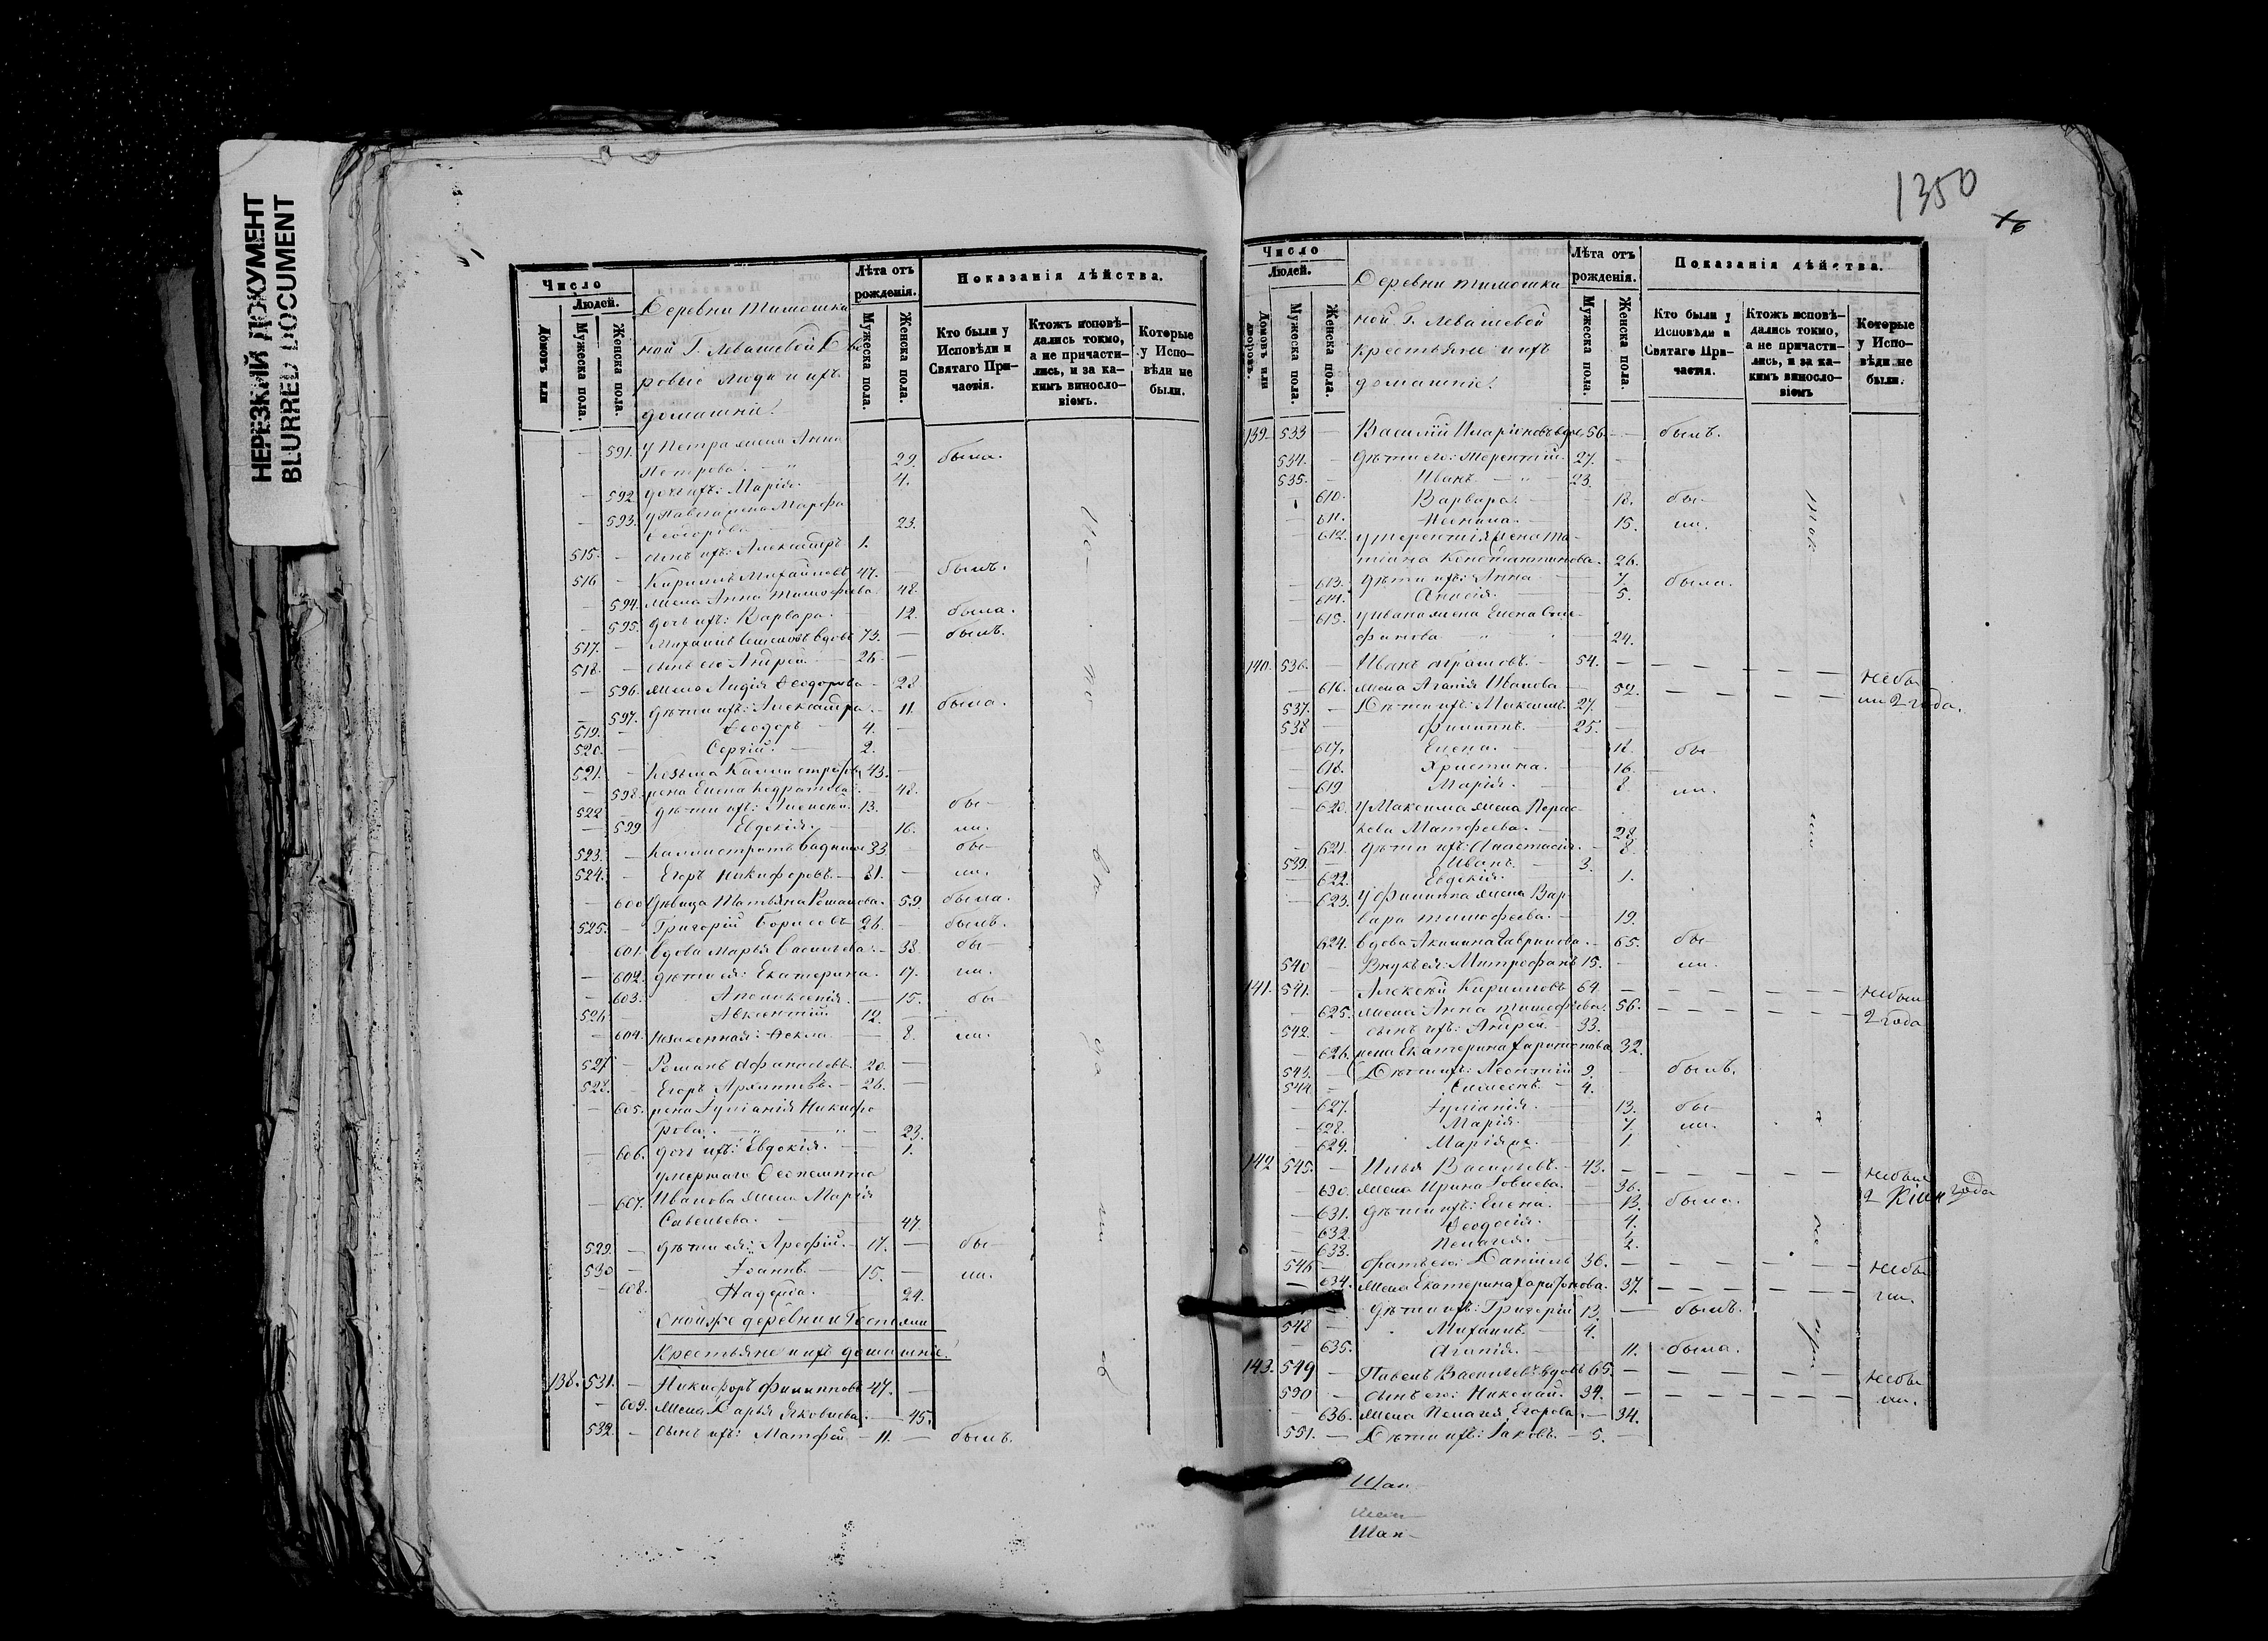 НЕРЕЗКИЙ ДОКУМЕНТ
BLURRED DOCUMENT
Число
Людей.
Домовъ или
Мужеска пола.
Женска пола.
Деревни Тимошки
ной Г. Левашевой Дво
ровые люди и ихъ
домашніе.
Лѣта отъ
рожденія.
Мужеска пола.
Женска пола.
Показанія дѣйства.
Кто были у
Исповѣди и
Святаго При-
частія.
Ктожъ исповѣ-
дались токмо,
а не причасти-
лись, и за ка-
кимъ винослo-
віемъ.
Которые
у Испо-
вѣди не
были.
591. У Петра жена Анна
Петрова. 29. была.
592 дочь ихъ: Марія. 4.
593. У Павла жена Марфа
Ѳеодорова 23.
515. сынъ ихъ: Александръ 1.
516 Кириллъ Михайловъ 47. былъ.
594. жена Анна Тимофеева 48.
595. дочь ихъ: Варвара. 12. была.
517. Михаилъ вдовъ 73. былъ.
518. сынъ его Андрей. 26
596. жена Лидія Ѳеодорова 28
597. дѣти ихъ: Александра. 11. была.
519. Ѳеодоръ 4.
520. Сергій. 2.
521. Козьма Каллистратовъ 43.
598. жена Елена 48.
522 дѣти ихъ: Алексѣй. 13. бы-
599 Евдокія. 16. ли.
523. Каллистратъ 33 бы-
524. Егоръ Никифоровъ. 31. ли.
600 дѣвица Татьяна Романова. 59. была.
525. Григорій Борисовъ 26. былъ.
601. вдова Марья Васильева. 38. бы-
602. дѣти ея: Екатерина. 17. ли.
603. Аполлинарія. 15. бы-
526 Авксентій 12.
604. незаконная: Ѳекла. 8. ли.
527 Романъ Афанасьевъ. 20.
528. Егоръ Архиповъ. 26.
605. жена Іуліанія Никифо
рова. 23.
606. дочь ихъ: Евдокія. 1.
умершаго Ѳеопемпта
607. Иванова жена Марія
Савельева. 47.
529. дѣти ея: Арефій. 17. бы-
530 Іоаннъ. 15. ли.
608. Надежда. 24.
Тойже деревни и Госпожи
Крестьяне и ихъ домашніе.
138. 531. Никифоръ Филипповъ 47.
609. жена Дарья Яковлева. 45.
532. сынъ ихъ: Матфей 11. былъ.
1350
Число
Людей.
Домовъ или
дворовъ.
Мужеска пола.
Женска пола.
Деревни Тимошки
ной Г. Левашевой
Крестьяне и ихъ
домашніе.
Лѣта отъ
рожденія.
Мужеска пола.
Женска пола.
Показанія дѣйства.
Кто были у
Исповѣди и
Святаго При-
частія.
Ктожъ исповѣ-
дались токмо,
а не причасти-
лись, и за ка-
кимъ винослo-
віемъ
Которые
у Испо-
вѣди не
были.
139. 533 Василій Иларіоновъ вдовъ 56. былъ.
534. дѣти его: Терентій. 27.
535. Иванъ 23.
610. Варвара. 18. бы-
611. 15. ли.
612. У Терентія жена Та-
тіана Константинова. 26.
613. дѣти ихъ: Анна 7. была.
614. Анисія. 5.
615. У Ивана жена Елена
24.
140. 536. Иванъ 54. небы
616. жена Агапія Иванова 52. ли 2 года.
537. Дѣти ихъ: Максимъ 27.
538 Филиппъ. 25.
617. Елена. 18. бы-
618. Христина. 16.
619 Марія. 8 ли.
620. У Максима жена Параc-
кева Матфеева. 28.
621. дѣти ихъ: Анастасія. 8.
539. Иванъ. 3.
622. Евдокія. 1.
623. У Филиппа жена Вар
вара Тимофеева. 19.
624. вдова Акилина Гаврилова. 65. бы-
540 Внукъ ея: Митрофанъ 15. ли.
141. 541. Алексѣй Кирилловъ 64. небыли
625. жена Анна Тимофѣева. 56. 2 года
542. сынъ ихъ: Андрей. 33.
626. жена Екатерина Харитонова 32.
543. Дѣти ихъ: Леонтій 9. былъ.
544. Симеонъ. 4.
627. Іуліанія. 13. бы-
628. Марія. 7. ли.
629. Марія же. 1
142 545. Илья Васильевъ. 43. небыли
630. жена Ирина Іовлева. 36. 2 года
631. дѣти ихъ: Елена. 13. была.
632. Ѳеодосія. 4.
633. Пелагея. 2.
546 братъ его: Даніилъ 36. небы
634. жена Екатерина Харитонова. 37. ли.
дѣти ихъ: Григорій 13. былъ.
548 Михаилъ. 4.
635. Агапія. 11. была.
143. 549 Павелъ Васильевъ вдовъ 65. небы
550 сынъ его: Николай. 34. ли.
636. жена Пелагея Егорова. 34.
551. Дѣти ихъ: Іаковъ. 5.